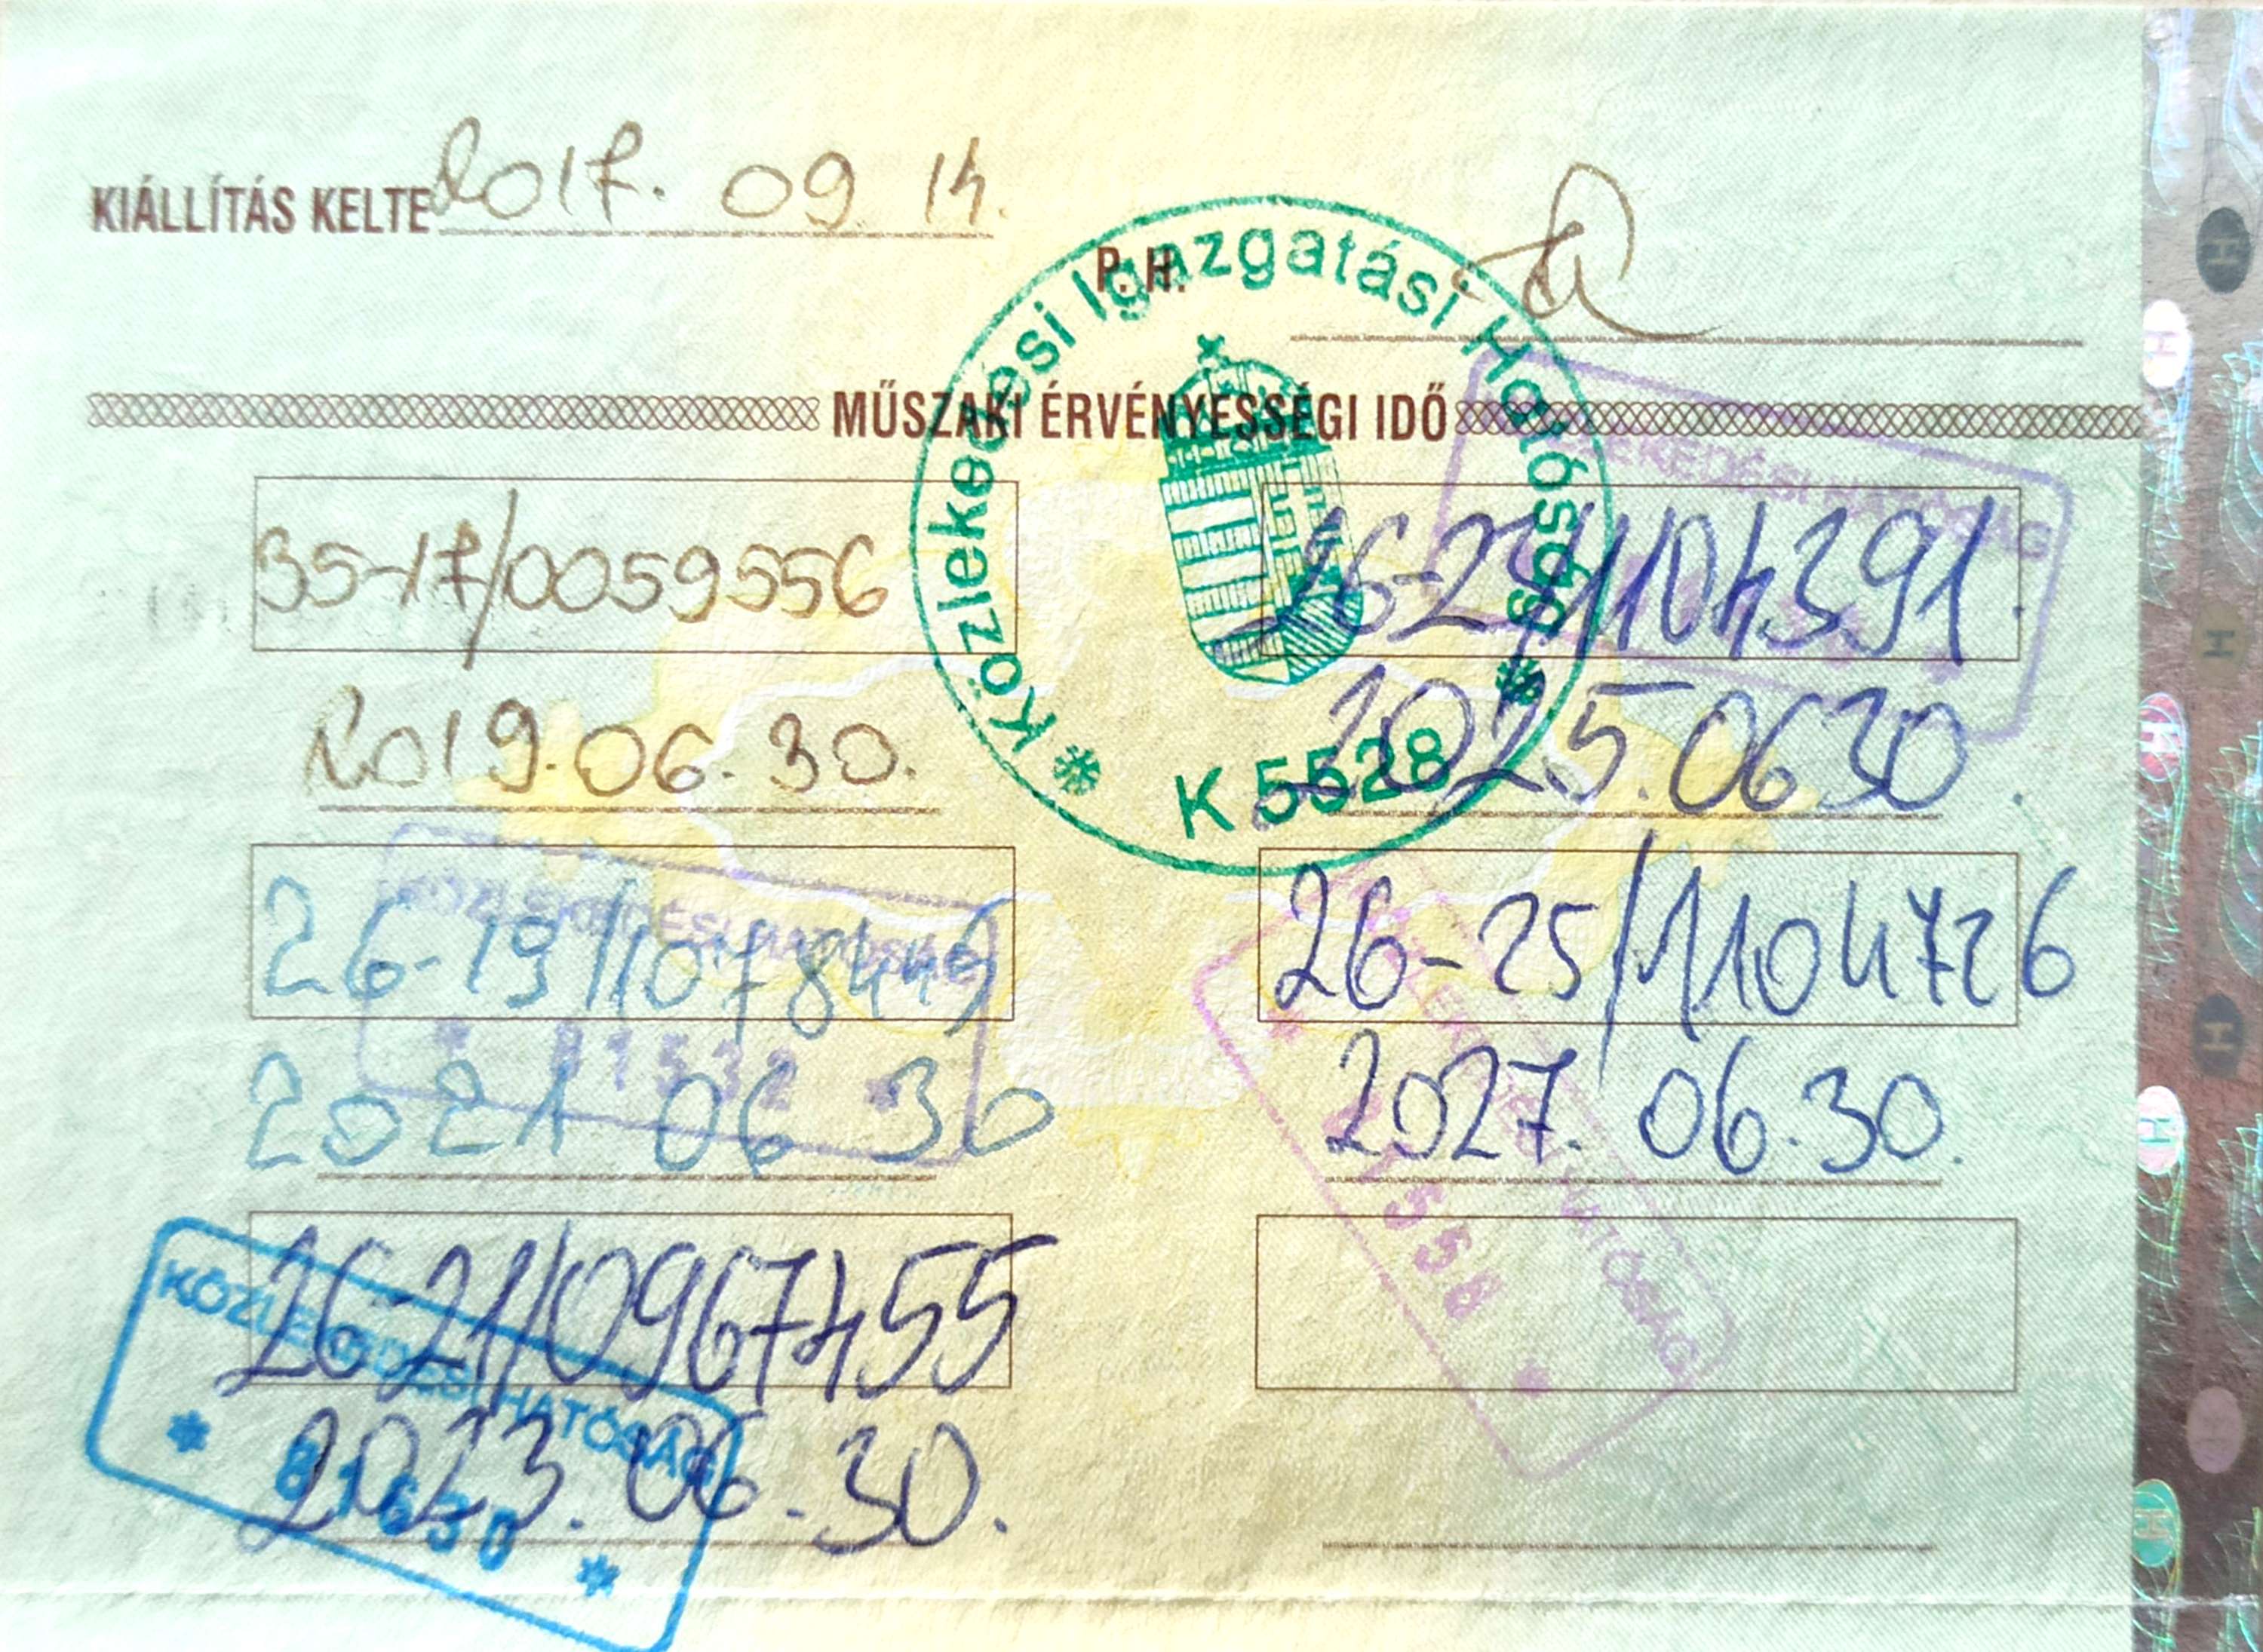 KIÁLLÍTÁS KELTE 2017. 09 14.
P. H.
Közlekedési Igazgatási Hatóság
K 5528
MŰSZAKI ÉRVÉNYESSÉGI IDŐ
35-17/0059556
2019.06.30.
KÖZLEKEDÉSI HATÓSÁG
26-19/1078449
2021 06 30
KÖZLEKEDÉSI HATÓSÁG
2621/0967455
2023.06.30.
81630
KÖZLEKEDÉSI HATÓSÁG
2025.0630.
26-25/1104726
2027. 06.30.
KÖZLEKEDÉSI HATÓSÁG